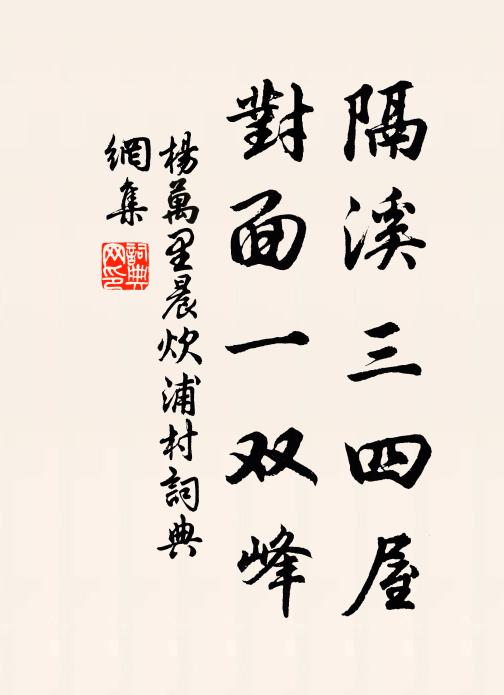 隔溪三四屋
對面一双峰
楊萬里晨炊浦村詞典
網集
詞典网印